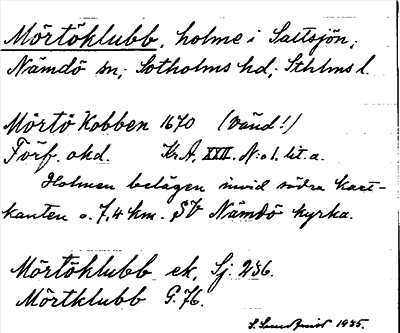 Mörtöklubb, holme i Saltsjön,
Nämdö sn, Sotholms hd, Sthlms l.
Mörtö Kobben 1670 (vänd!)
Förf. okd. KrA, XXII. N:o 1. lit. a.
Holmen belägen invid södra kart-
kanten o. 7,4 km. SV Nämdö kyrka.
Mörtöklubb ek, Sj. 236.
Mörtklubb G. 76.
1935.